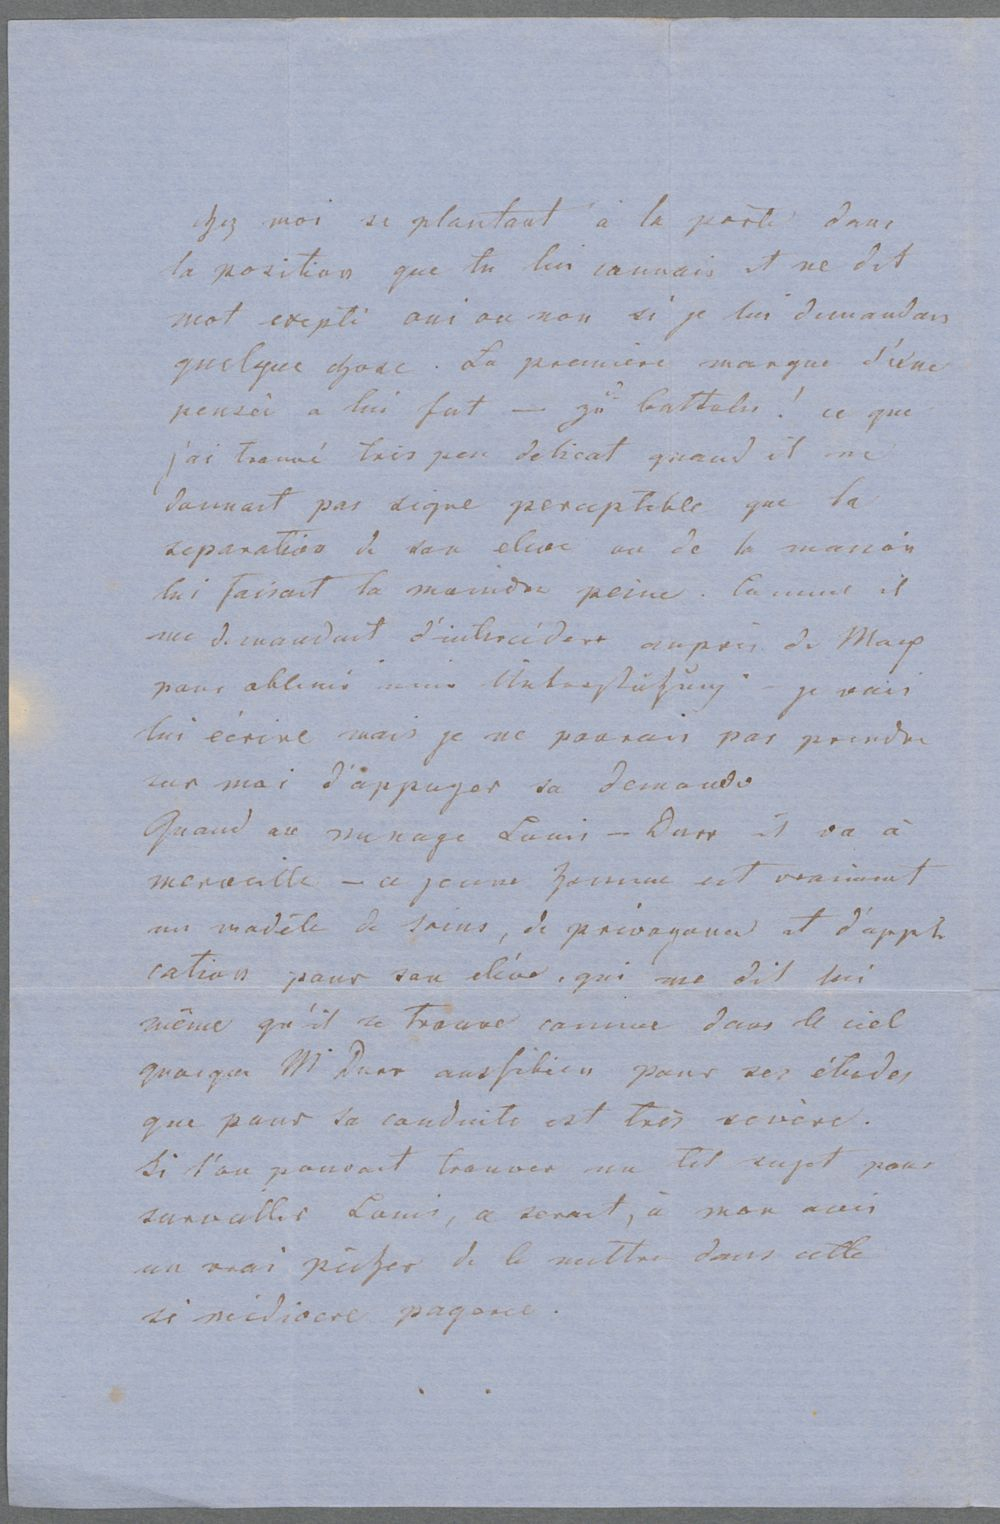 chez moi se plantant à la porte dans
la position que tu lui connais et ne dit
mot excepté oui ou non si je lui demandais
quelque chose. La première marque d'une
pensée a lui fut — zu betteln! ce que
j'ai trouvé très peu delicat quand il ne
donnait pas signe perceptible que la
separation de son elève ou de la maison
lui faisait la moindre peine. Comme il
me demandait d'intercéder auprès de Max
pour obtenir eine Unterstützung — je vais
lui écrire mais je ne pourais pas prendre
sur moi d'appuyer sa demande
Quand au menage Louis — Durr il va à
merveille — ce jeune homme est vraiment
un modèle de soins, de prévoyance et d'appli
cation pour son élève, qui me dit lui
même qu'il se trouve comme dans le ciel
quoique Mr Durr aussibien pour ses études
que pour sa conduite est très sevère.
Si l'on pouvait trouver un tel sujet pour
surveiller Louis, ce serait, à mon avis
un vrai pécher de le mettre dans cette
si médiocre pagerie.